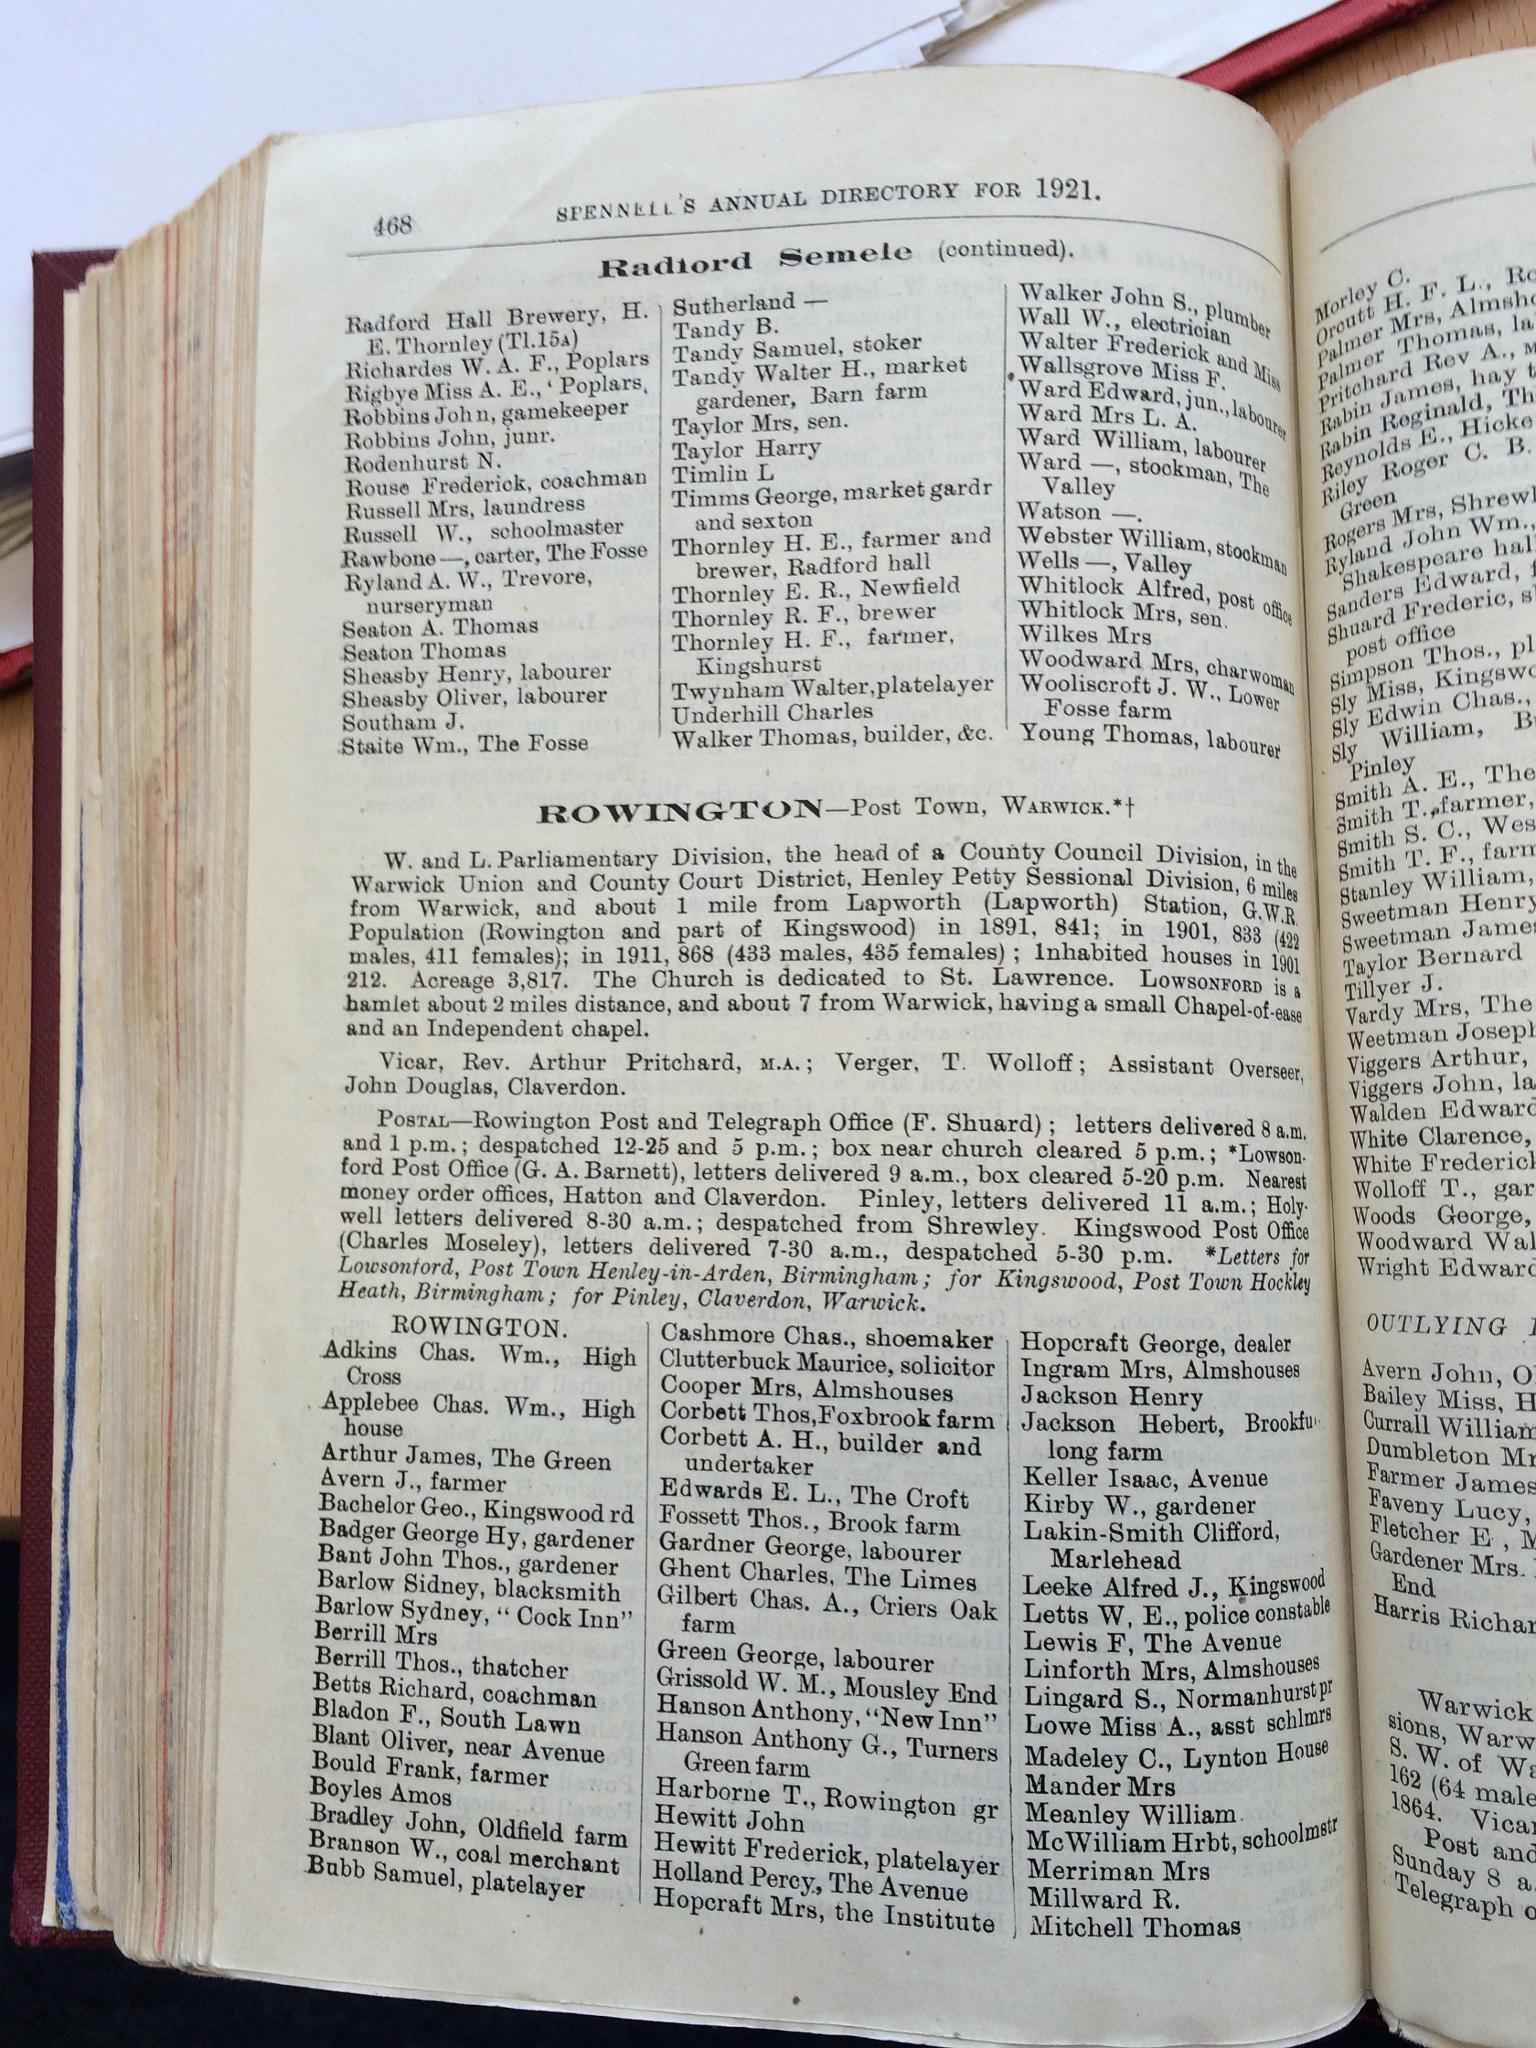 468
SPENNELL'S ANNUAL DIRECTORY FOR 1921.
Radford Semele (continued).
Radford Hall Brewery, H.
E. Thornley (Tl.15A)
Richardes W. A. F., Poplars
Rigbye Miss A. E., ‘ Poplars,
Robbins John, gamekeeper
Robbins John, junr.
Rodenhurst N.
Rouse Frederick, coachman
Russell Mrs, laundress
Russell W., schoolmaster
Rawbone —, carter, The Fosse
Ryland A. W., Trevore,
nurseryman
Seaton A. Thomas
Seaton Thomas
Sheasby Henry, labourer
Sheasby Oliver, labourer
Southam J.
Staite Wm., The Fosse
Sutherland —
Tandy B.
Tandy Samuel, stoker
Tandy Walter H., market
gardener, Barn farm
Taylor Mrs, sen.
Taylor Harry
Timlin L
Timms George, market gardr
and sexton
Thornley H. E., farmer and
brewer, Radford hall
Thornley E. R., Newfield
Thornley R. F., brewer
Thornley H. F., farmer,
Kingshurst
Twynham Walter,platelayer
Underhill Charles
Walker Thomas, builder, &c.
Walker John S., plumber
Wall W., electrician
Walter Frederick and Miss
Wallsgrove Miss F.
Ward Edward, jun., labourer
Ward Mrs L. A.
Ward William, labourer
Ward —, stockman, The
Valley
Watson —.
Webster William, stockman
Wells —, Valley
Whitlock Alfred, post office
Whitlock Mrs, sen.
Wilkes Mrs
Woodward Mrs, charwoman
Wooliscroft J. W., Lower
Fosse farm
Young Thomas, labourer
ROWINGTON—Post Town, WARWICK.*†
W. and L. Parliamentary Division, the head of a County Council Division, in the
Warwick Union and County Court District, Henley Petty Sessional Division, 6 miles
from Warwick, and about 1 mile from Lapworth (Lapworth) Station, G.W.R.
Population (Rowington and part of Kingswood) in 1891, 841; in 1901, 833 (422
males, 411 females); in 1911, 868 (433 males, 435 females) ; Inhabited houses in 1901
212. Acreage 3,817. The Church is dedicated to St. Lawrence. LOWSONFORD is a
hamlet about 2 miles distance, and about 7 from Warwick, having a small Chapel-of-ease
and an Independent chapel.
Vicar, Rev. Arthur Pritchard, M.A. ; Verger, T. Wolloff ; Assistant Overseer,
John Douglas, Claverdon.
POSTAL—Rowington Post and Telegraph Office (F. Shuard) ; letters delivered 8 a.m.
and 1 p.m. ; despatched 12-25 and 5 p.m. ; box near church cleared 5 p.m. ; *Lowson-
ford Post Office (G. A. Barnett), letters delivered 9 a.m., box cleared 5-20 p.m. Nearest
money order offices, Hatton and Claverdon. Pinley, letters delivered 11 a.m. ; Holy-
well letters delivered 8-30 a.m. ; despatched from Shrewley. Kingswood Post Office
(Charles Moseley), letters delivered 7-30 a.m., despatched 5-30 p.m. *Letters for
Lowsonford, Post Town Henley-in-Arden, Birmingham ; for Kingswood, Post Town Hockley
Heath, Birmingham ; for Pinley, Claverdon, Warwick.
ROWINGTON.
Adkins Chas. Wm., High
Cross
Applebee Chas. Wm., High
house
Arthur James, The Green
Avern J., farmer
Bachelor Geo., Kingswood rd
Badger George Hy, gardener
Bant John Thos., gardener
Barlow Sidney, blacksmith
Barlow Sydney, “ Cock Inn”
Berrill Mrs
Berrill Thos., thatcher
Betts Richard, coachman
Bladon F., South Lawn
Blant Oliver, near Avenue
Bould Frank, farmer
Boyles Amos
Bradley John, Oldfield farm
Branson W., coal merchant
Bubb Samuel, platelayer
Cashmore Chas., shoemaker
Clutterbuck Maurice, solicitor
Cooper Mrs, Almshouses
Corbett Thos,Foxbrook farm
Corbett A. H., builder and
undertaker
Edwards E. L., The Croft
Fossett Thos., Brook farm
Gardner George, labourer
Ghent Charles, The Limes
Gilbert Chas. A., Criers Oak
farm
Green George, labourer
Grissold W. M., Mousley End
Hanson Anthony, “New Inn”
Hanson Anthony G., Turners
Green farm
Harborne T., Rowington gr
Hewitt John
Hewitt Frederick, platelayer
Holland Percy, The Avenue
Hopcraft Mrs, the Institute
Hopcraft George, dealer
Ingram Mrs, Almshouses
Jackson Henry
Jackson Hebert, Brookfu
long farm
Keller Isaac, Avenue
Kirby W., gardener
Lakin-Smith Clifford,
Marlehead
Leeke Alfred J., Kingswood
Letts W, E., police constable
Lewis F, The Avenue
Linforth Mrs, Almshouses
Lingard S., Normanhurst pr
Lowe Miss A., asst schlmrs
Madeley C., Lynton House
Mander Mrs
Meanley William
McWilliam Hrbt, schoolmstr
Merriman Mrs
Millward R.
Mitchell Thomas
Morley C.
Orcutt H. F. L., Ro
Palmer Mrs, Almsho
Palmer Thomas, la
Pritchard Rev A., M
Rabin James, hay t
Rabin Reginald, Th
Reynolds E., Hicke
Riley Roger C. B.
Green
Rogers Mrs, Shrewl
Ryland John Wm.,
Shakespeare hal
Sanders Edward, f
Shuard Frederic, s
post office
Simpson Thos., pl
Sly Miss, Kingswo
Sly Edwin Chas.,
Sly William, B
Pinley
Smith A. E., The
Smith T., farmer,
Smith S. C., Wes
Smith T. F., farm
Stanley William,
Sweetman Henry
Sweetman James
Taylor Bernard
Tillyer J.
Vardy Mrs, The
Weetman Joseph
Viggers Arthur,
Viggers John, la
Walden Edward
White Clarence,
White Frederick
Wolloff T., gar
Woods George,
Woodward Wal
Wright Edward
OUTLYING
Avern John, O
Bailey Miss, H
Currall William
Dumbleton Mr
Farmer James
Faveny Lucy,
Fletcher E , M
Gardener Mrs.
End
Harris Richar
Warwick
sions, Warw
S. W. of Wa
162 (64 male
1864. Vicar
Post and
Sunday 8 a
Telegraph o